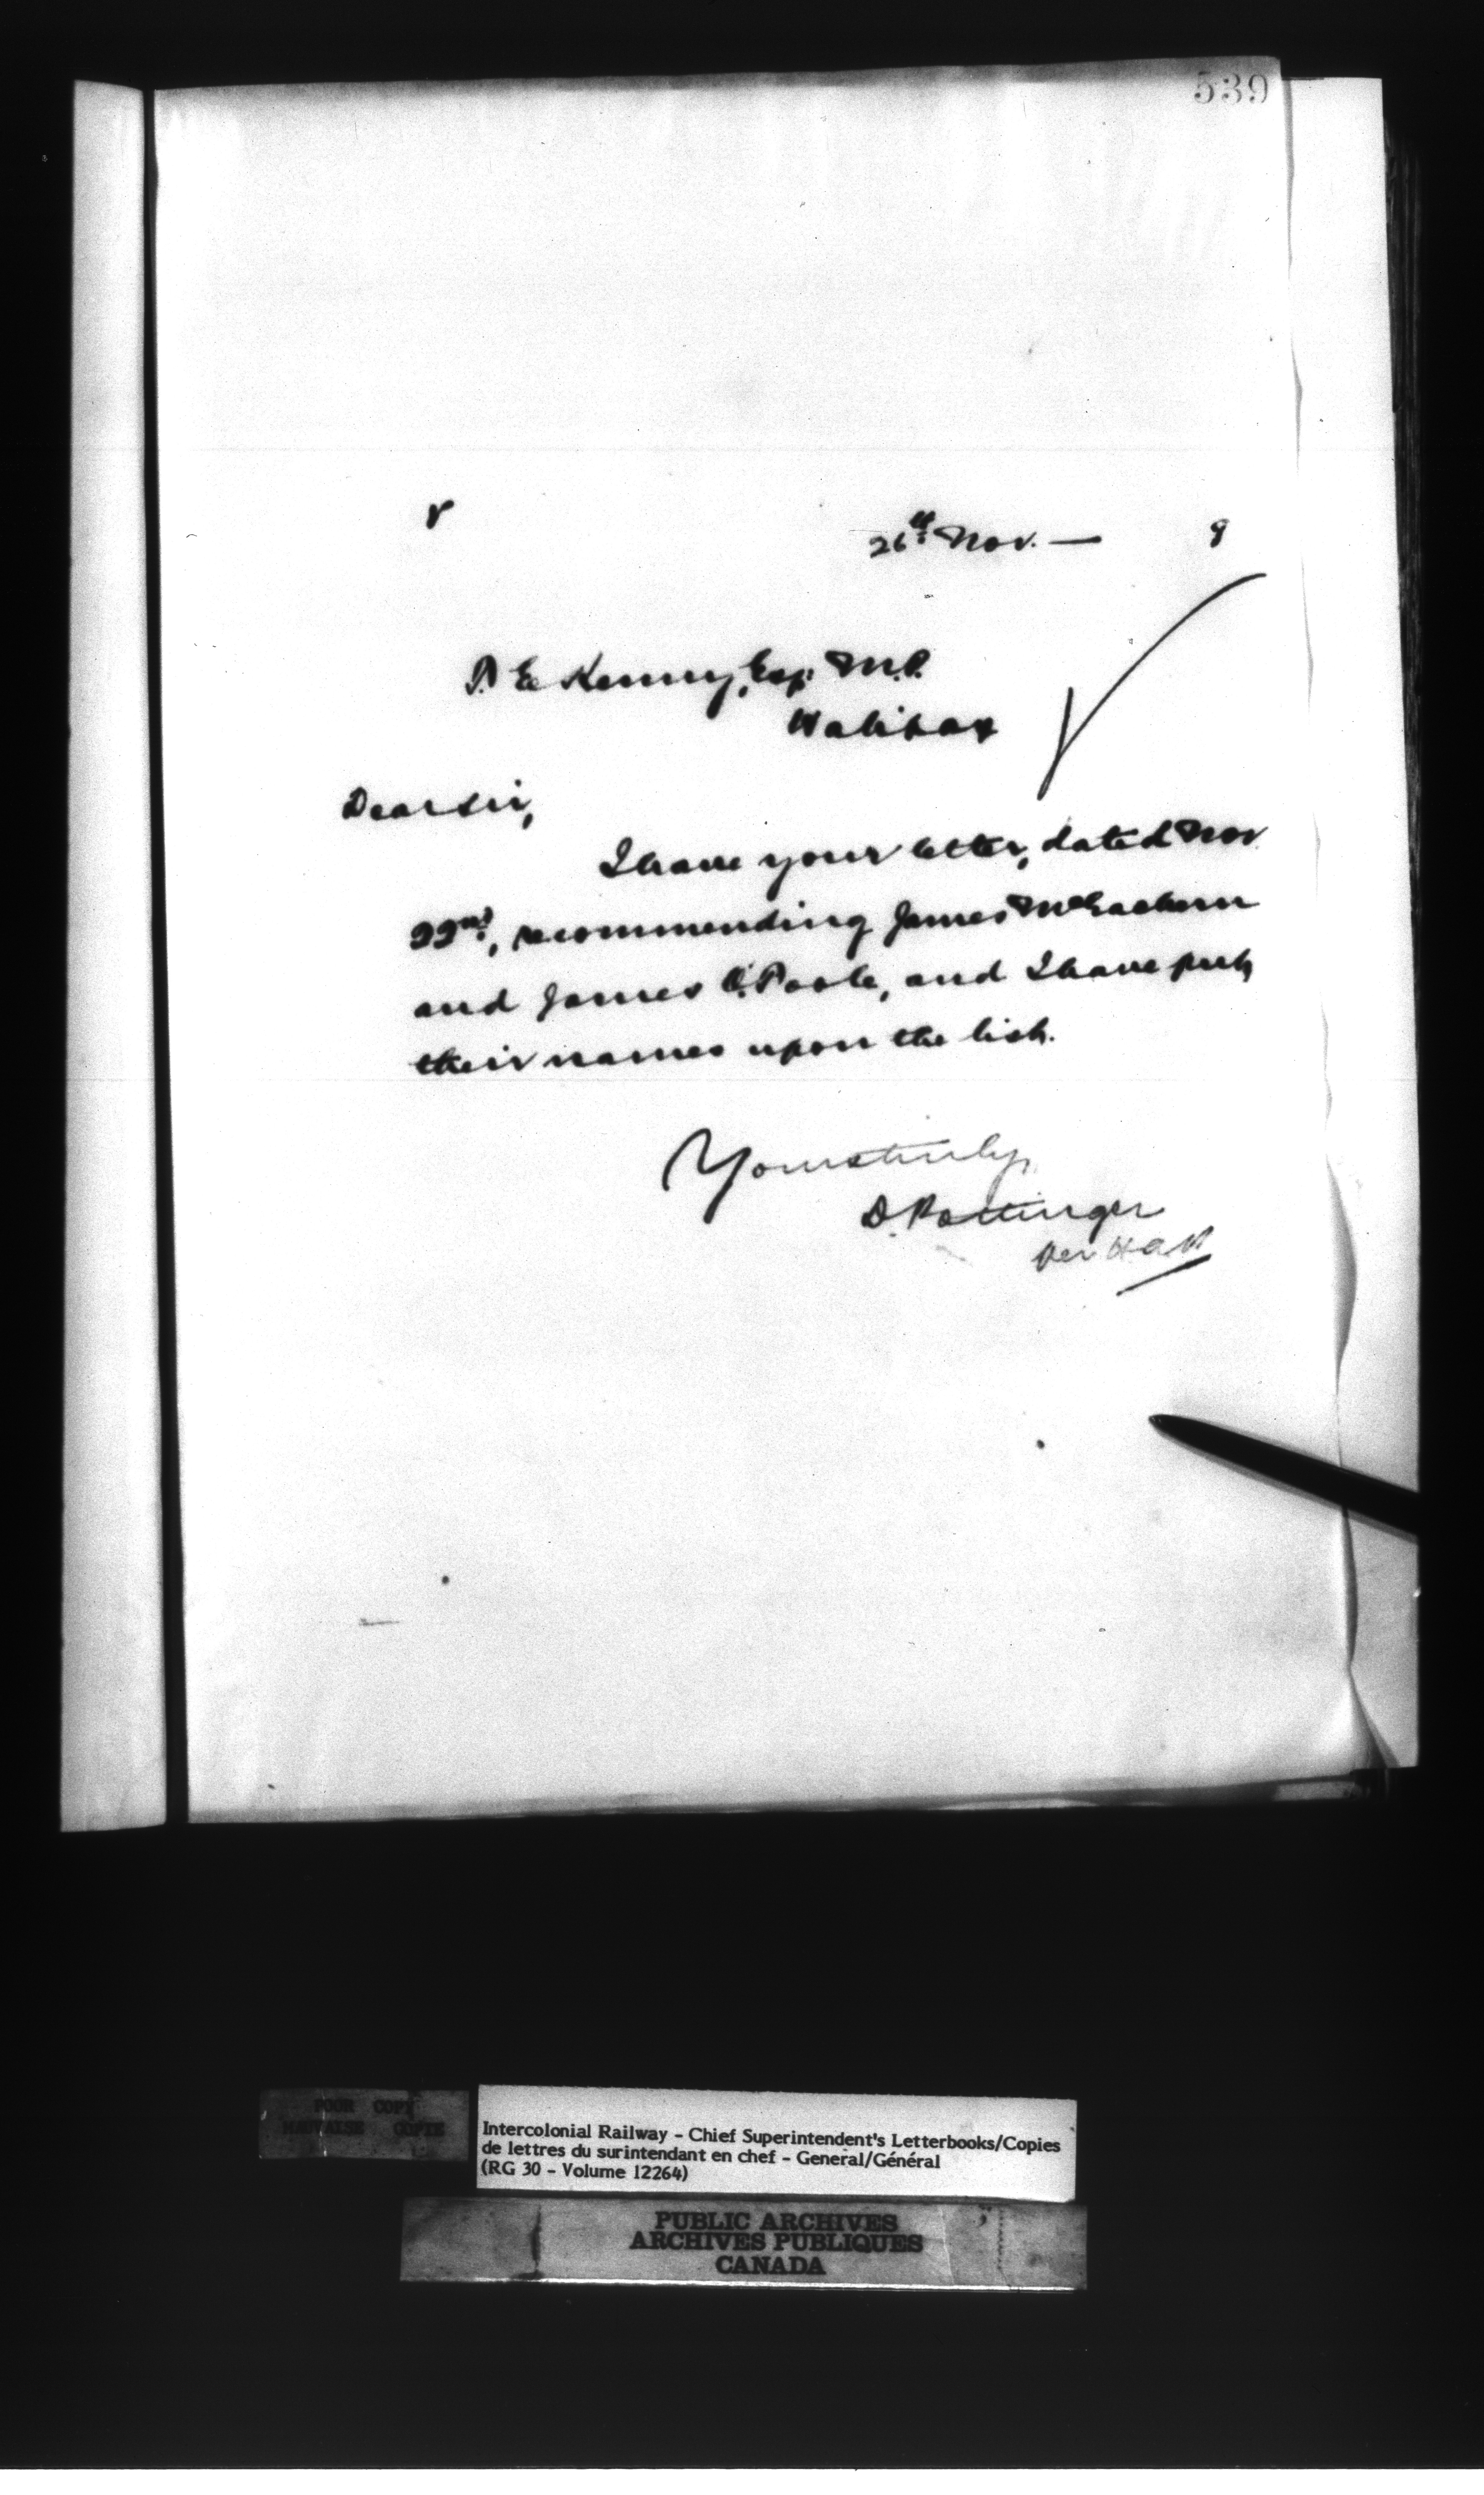 539
r
26th Nov. — 9
T. E. Kenny, Esq. M.P.
Halifax
Dear Sir,
I have your letter, dated Nov.
22nd, recommending James McEachern
and James C. Poole, and I have put
their names upon the list.
Yours truly,
D. Pottinger
Per
POOR COPY
MAUVAISE COPIE
Intercolonial Railway - Chief Superintendent's Letterbooks/Copies
de lettres du surintendant en chef - General/Général
(RG 30 - Volume 12264)
PUBLIC ARCHIVES
ARCHIVES PUBLIQUES
CANADA